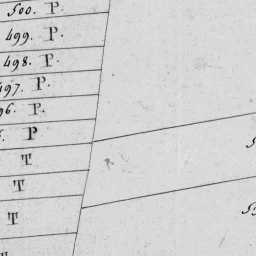 500. P.
499. P.
498. P.
497. P.
96. P.
P
T
T
T
T